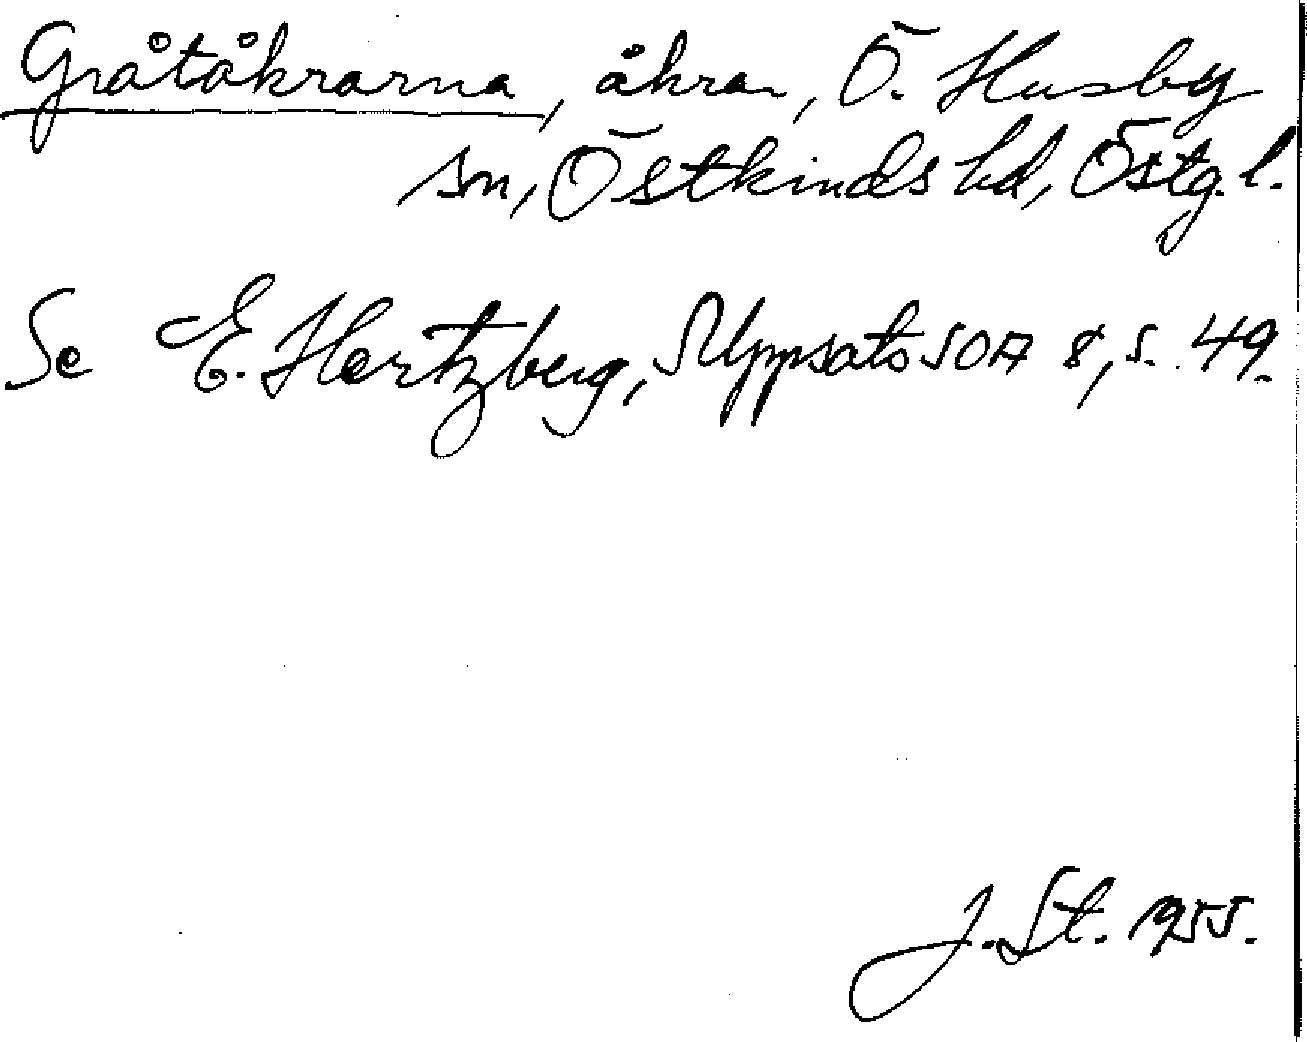 Gråtåkrarna, åkrar, Ö. Husby
sn, Östkinds hd, Östg. l.
Se E. Hertzberg, Uppsats SOA 8, s. 49.
J. St. 1955.